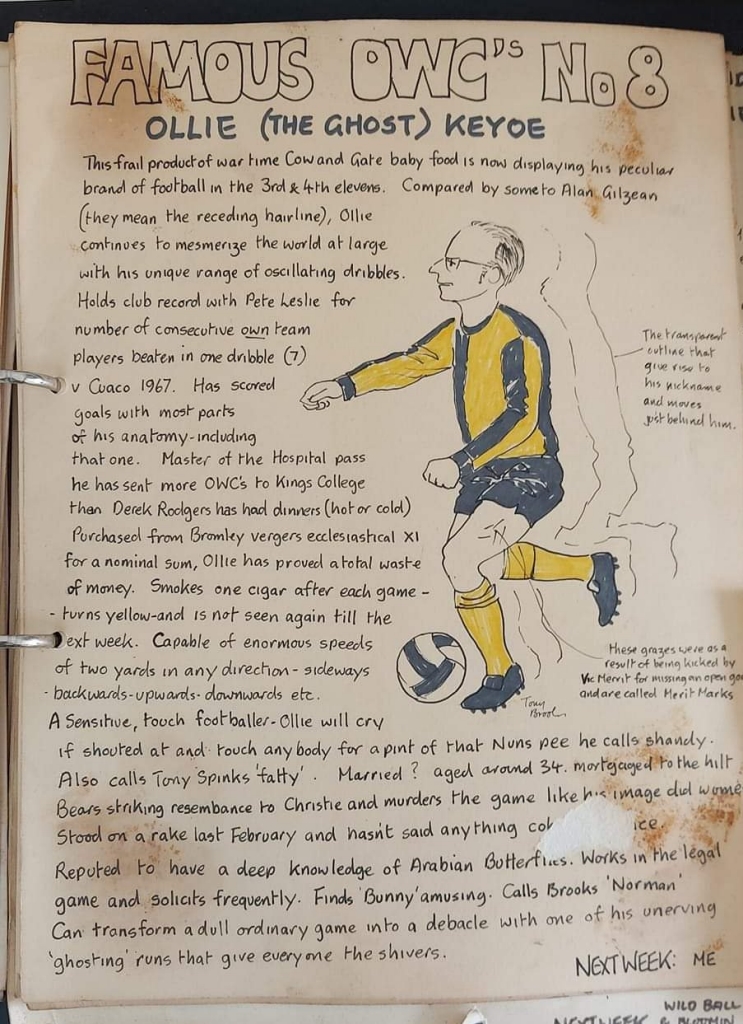 FAMOUS OWC's No 8
OLLIE (THE GHOST) KEYOE
This frail product of war time Cow and Gate baby food is now displaying his peculiar
brand of football in the 3rd & 4th elevens. Compared by some to Alan Gilzean
(they mean the receding hairline), Ollie
continues to mesmerize the world at large
with his unique range of oscillating dribbles.
Holds club record with Pete Leslie for
number of consecutive own team
players beaten in one dribble (7)
v Cuaco 1967. Has scored
goals with most parts
of his anatomy-including
that one. Master of the Hospital pass
he has sent more OWC's to Kings College
than Derek Rodgers has had dinners (hot or cold)
Purchased from Bromley vergers ecclesiastical XI
for a nominal sum, Ollie has proved a total waste
of money. Smokes one cigar after each game -
- turns yellow-and is not seen again till the
ext week. Capable of enormous speeds
of two yards in any direction - sideways
- backwards-upwards-downwards etc.
A Sensitive, touch footballer-Ollie will cry
if shouted at and touch anybody for a pint of that Nuns pee he calls shandy.
Also calls Tony Spinks 'fatty'. Married? aged around 34. mortgaged to the hilt
Bears striking resembance to Christie and murders the game like his image did wome
Stood on a rake last February and hasn't said anything ice.
Reputed to have a deep knowledge of Arabian Butterflies. Works in the legal
game and solicits frequently. Finds 'Bunny' amusing. Calls Brooks 'Norman'
Can transform a dull ordinary game into a debacle with one of his unerving
'ghosting' runs that give everyone the shivers.
NEXT WEEK: ME
The transparent
outline that
give rise to
his nickname
and moves
just behind him.
These grazes were as a
result of being kicked by
Vic Merrit for missing an open go
and are called Merit Marks
Tony
Brooks
WILD BALL
NEXT WEEK